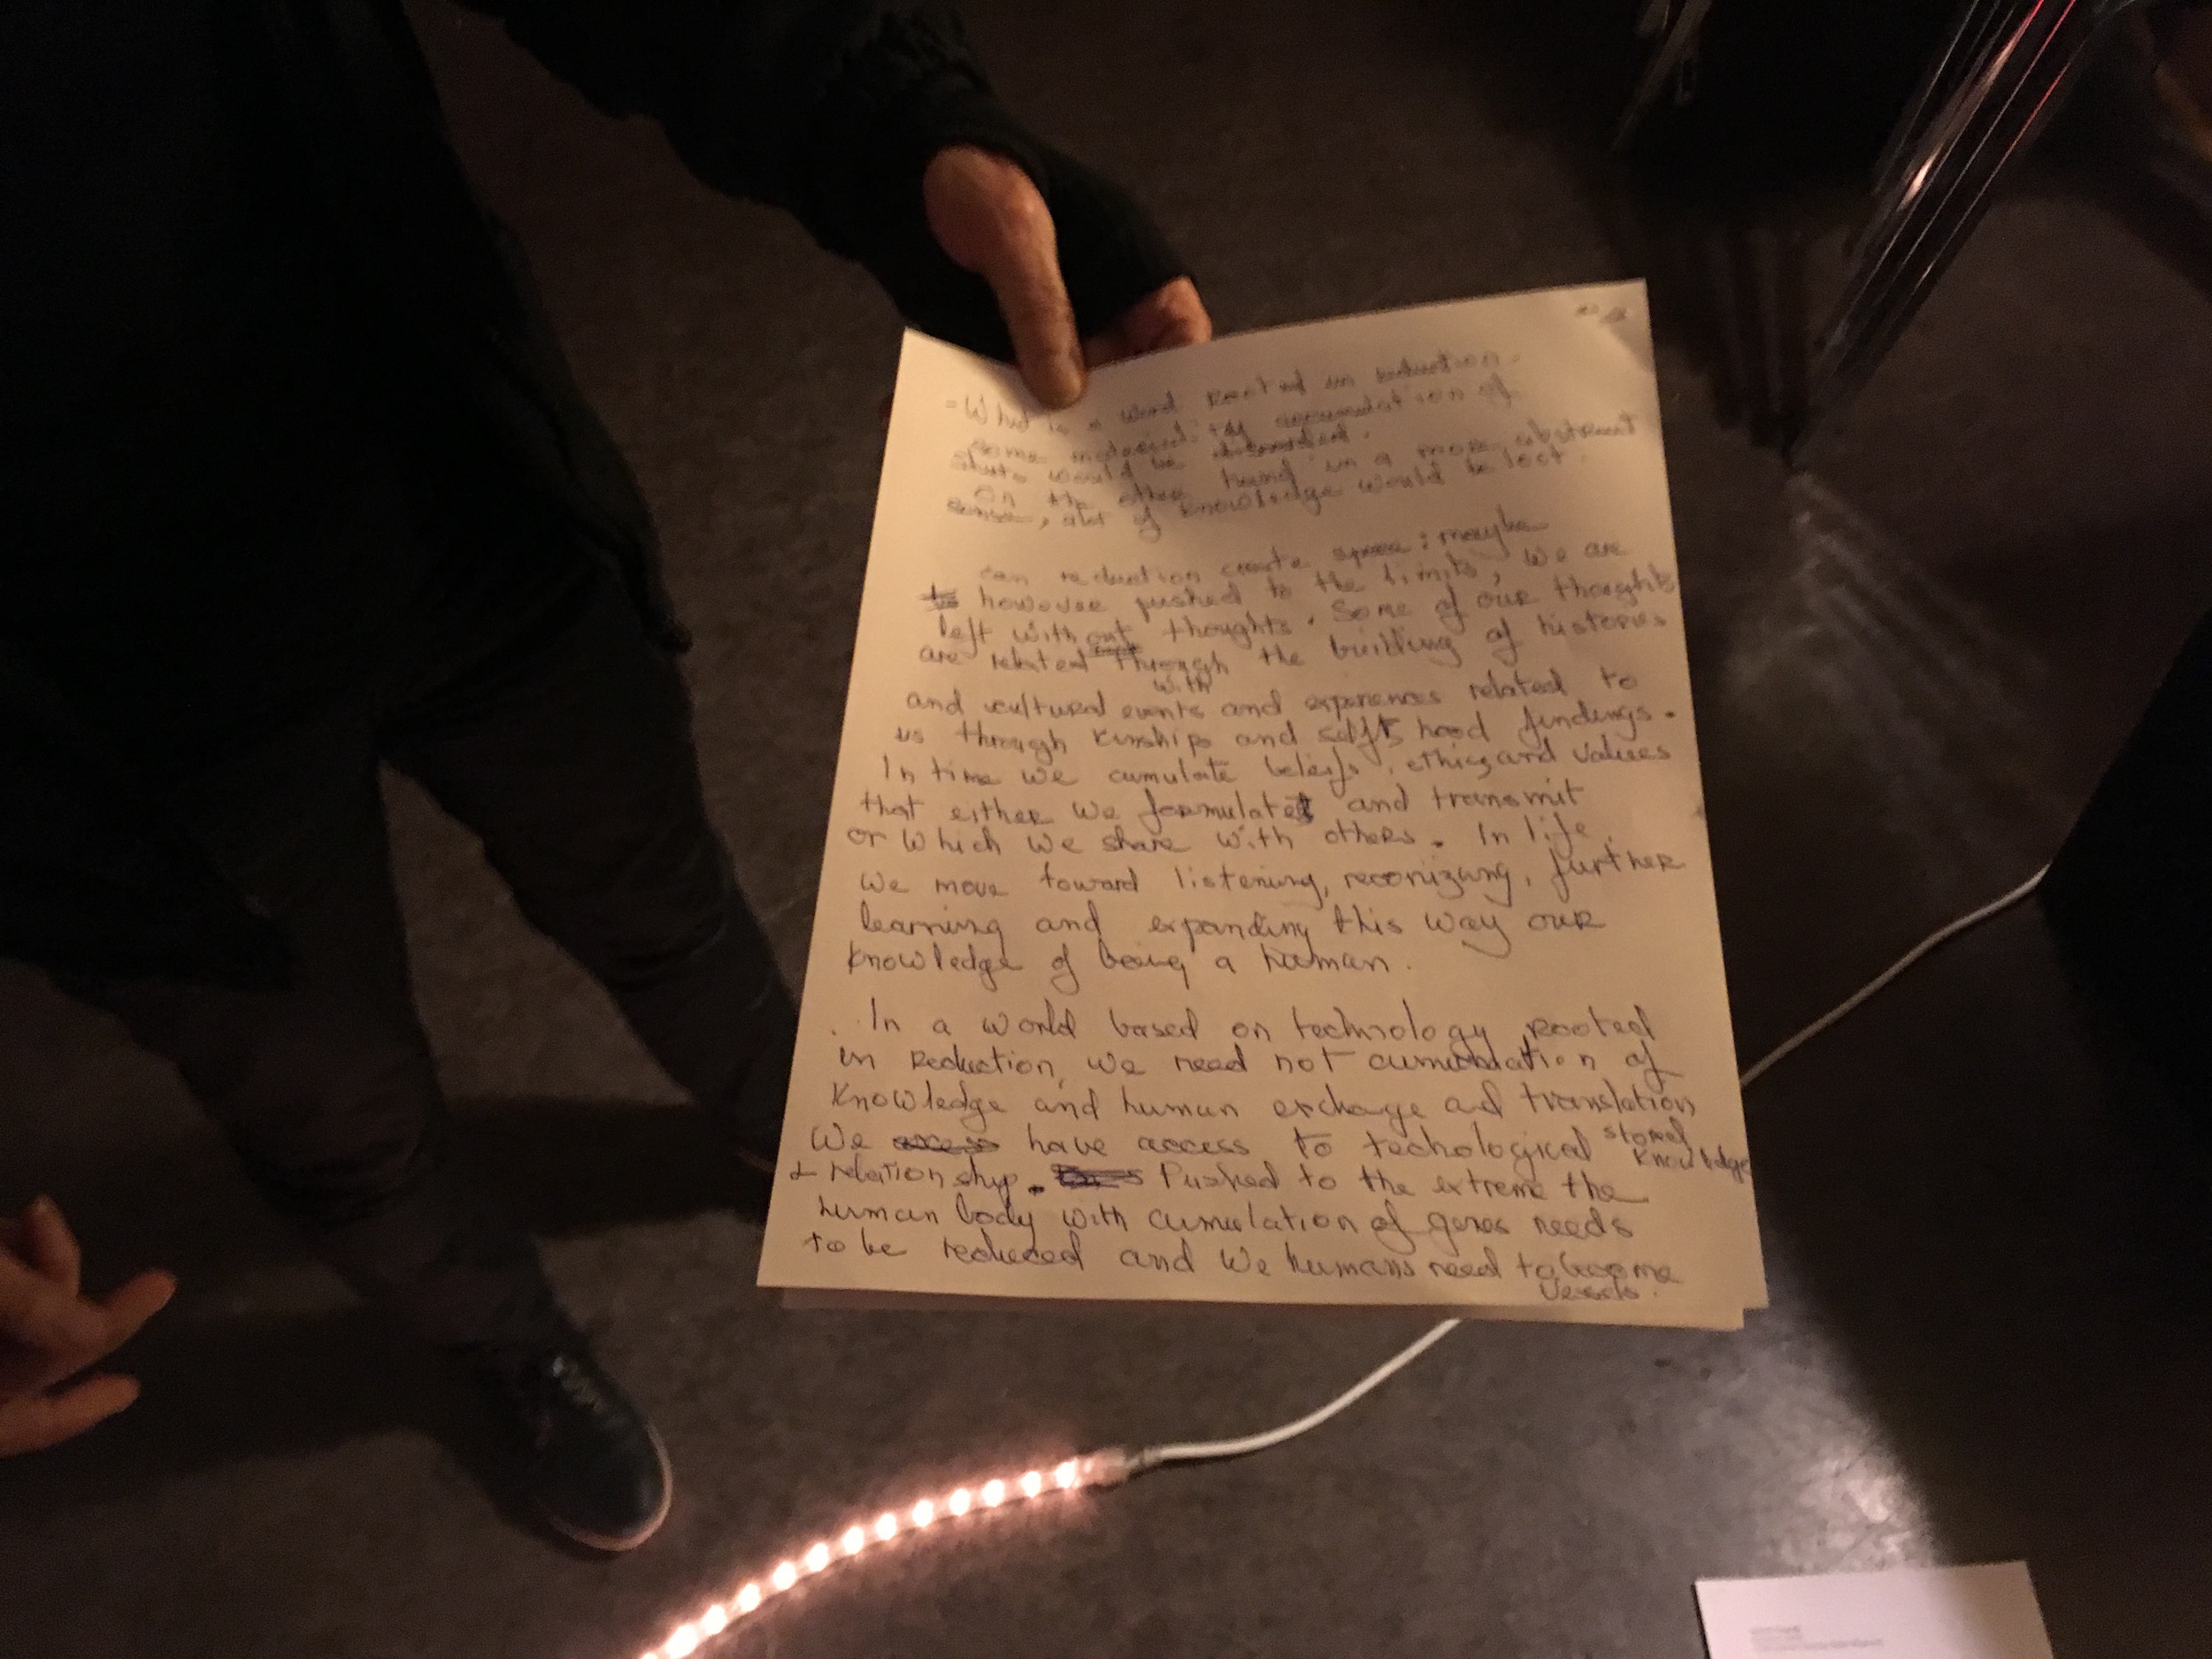 - What is a word Rooted in reduction.
some material. the accumulation of
would be
On the other hand in a more abstract
sense, alot of knowledge would be lost.
can reduction create space : maybe
however pushed to the limits, we are
left without thoughts. Some of our thoughts
are related through the building of histories
with
and cultural events and experiences related to
us through kinships and selfs hood findings.
In time we cumulate beleifs, ethics and values
that either we formulate and transmit
or which we share with others. In life
we move toward listening, reconizung, further
learning and expanding this way our
knowledge of being a human.
. In a world based on technology Rooted
in Reduction, we need not cumulation of
knowledge and human exchange ad translation
We have access to techological stored knowledge
+ relationship. Pushed to the extreme the
human body with cumulation of genes needs
to be reduced and we humans need to become
vessels.